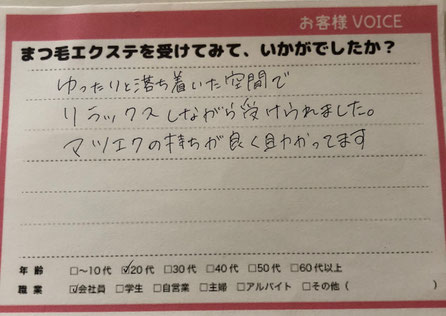 お客様 VOICE
まつ毛エクステを受けてみて、いかがでしたか？
ゆったりと落ち着いた空間で
リラックスしながら受けられました。
マツエクの持ちが良く助かってます
年齢 □〜10代 ☑20代 □30代 □40代 □50代 □60代以上
職業 ☑会社員 □学生 □自営業 □主婦 □アルバイト □その他（ ）